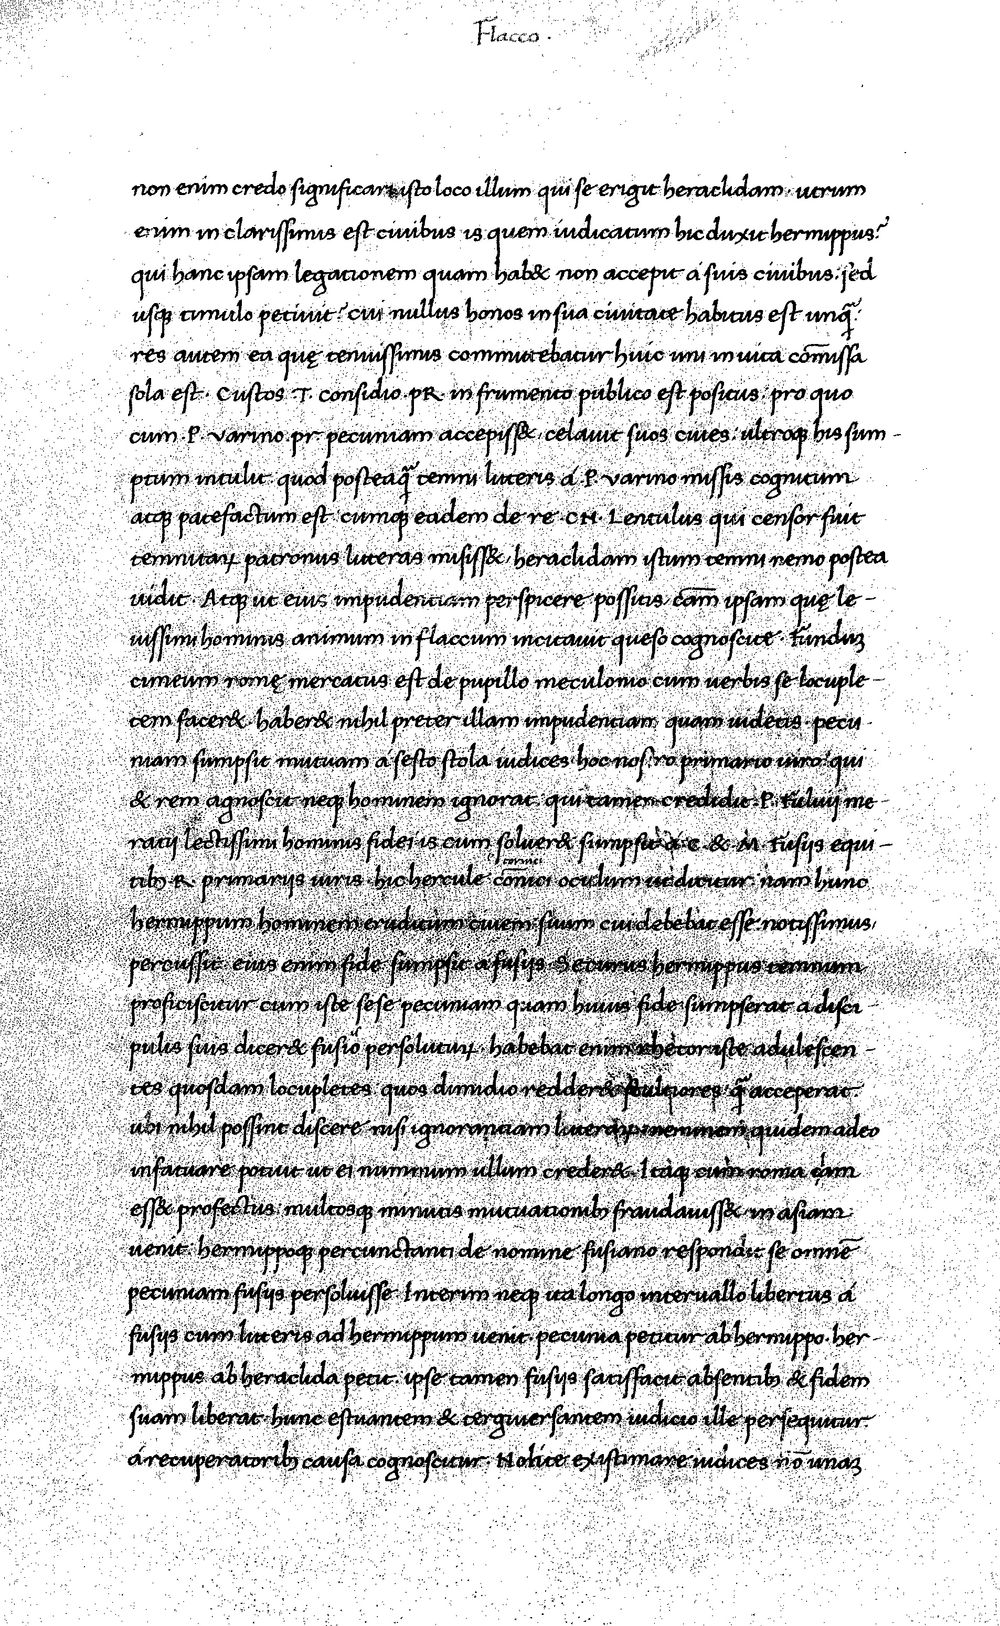 Flacco.
non enim credo significari isto loco illum qui se erigit heraclidam. utrum
enim in clarissimis est civibus is quem iudicatum hic duxit hermippus?
qui hanc ipsam legationem quam hab& non accepit á suis civibus: sed
usq; timulo petivit? cui nullus honos in sua civitate habitus est unq̃.
res autem ea quę tenuissimis committebatur huic uni in uita com̄issa
sola est. Custos .T. considio .pR. in frumento publico est positus. pro quo
cum .P. varino .pr. pecuniam accepiss&, celavit suos cives. ultroq; his sum-
ptum intulit. quod posteaq̃ temni litteris á .P. varino missis cognitum
atq; patefactum est. cumq; eadem de re .CN. Lentulus qui censor fuit
temnitaꝝ patronus litteras misiss&, heraclidam istum temni nemo postea
uidit. Atq; ut eius impudentiam perspicere possitis, cām ipsam quę le-
uissimi hominis animum in flaccum incitavit queso cognoscite. fundu₃
cimeum romę mercatus est de pupillo meculonio cum uerbis se locuple-
tem facer&. haber& nihil preter illam impudentiam quam uidetis. pecu-
niam sumpsit mutuam á sesto stola iudices hoc nostro primario uiro. qui
& rem agnoscit neq; hominem ignorat. qui tamen credidit .P. fuluij ne-
ratij lectissimi hominis fidei is cum solver& sumpsit á .C. & .M. fusijs equi-
tib; .R. primarijs uiris. hic hercule cornici oculum ut dicitur. nam hunc
hermippum hominem eruditum civem suum cui debebat esse notissimus,
percussit. eius enim fide sumpsit a fusijs. Securus hermippus temnum
proficiscitur cum iste sese pecuniam quam huius fide sumpserat a disci-
pulis suis dicer& fusio persoluturꝝ. habebat enim rhetor iste adulescen-
tes quosdam locupletes quos dimidio redder& stultiores q̃ acceperat.
ubi nihil possint discere nisi ignorantiam litteraꝝ neminem quidem adeo
infatuare potuit ut ei nummum ullum creder&. Itaq; cum roma clam
ess& profectus multosq; minutis mutuationib; fraudauiss&. in asiam
uenit. hermippoq; percunctanti de nomine fusiano respondit se omnē
pecuniam fusijs persoluisse. Interim neq; ita longo intervallo libertus á
fusijs cum litteris ad hermippum uenit. pecunia petitur ab hermippo. her-
mippus ab heraclida petit. ipse tamen fusijs satisfacit absentib; & fidem
suam liberat. hunc estuantem & tergiuersantem iudicio ille persequitur.
á recuperatorib; causa cognoscitur. Nolite existimare iudices nō una₃